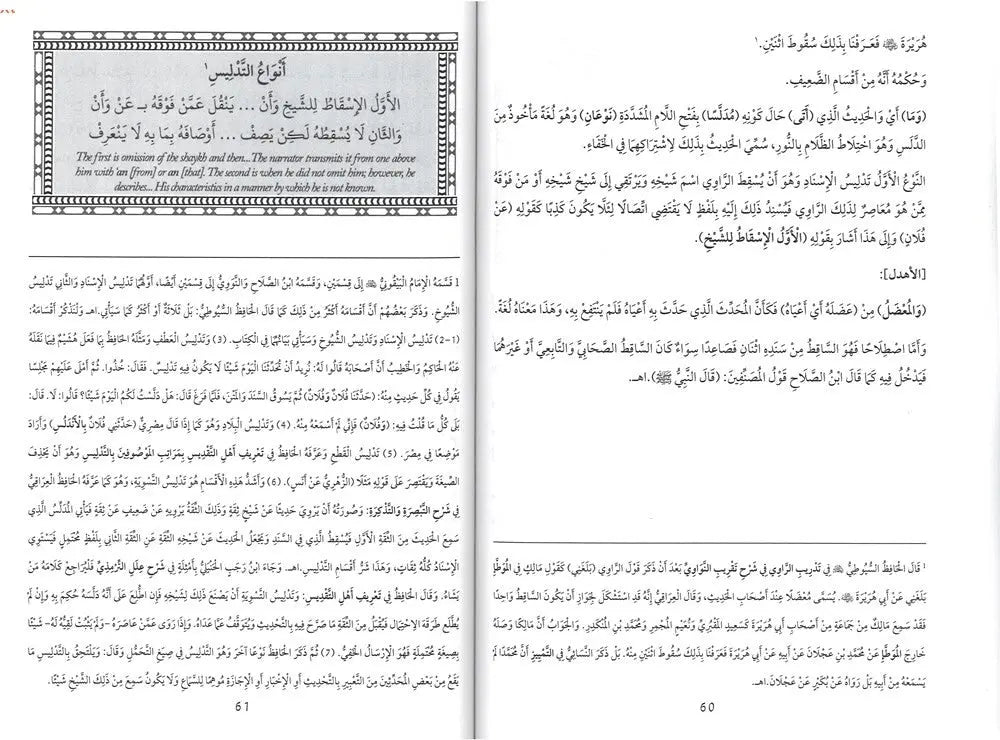 هُرَيْرَةَ ﷺ فَعَرَفْنَا بِذَلِكَ سُقُوطَ اثْنَيْنِ.١
وَحُكْمُهُ أَنَّهُ مِنْ أَقْسَامِ الضَّعِيفِ.
(وَمَا) أَيْ وَالْحَدِيثُ الَّذِي (أَتَى) حَالَ كَوْنِهِ (مُدَلَّسًا) بِفَتْحِ اللَّامِ الْمُشَدَّدَةِ (نَوْعَانِ) وَهُوَ لُغَةً مَأْخُوذٌ مِنَ
الدَّلَسِ وَهُوَ اخْتِلَاطُ الظَّلَامِ بِالنُّورِ، سُمِّيَ الْحَدِيثُ بِذَلِكَ لِاشْتِرَاكِهِمَا فِي الْخَفَاءِ.
النَّوْعُ الْأَوَّلُ تَدْلِيسُ الْإِسْنَادِ وَهُوَ أَنْ يُسْقِطَ الرَّاوِي اسْمَ شَيْخِهِ وَيَرْتَقِي إِلَى شَيْخِ شَيْخِهِ أَوْ مَنْ فَوْقَهُ
مِمَّنْ هُوَ مُعَاصِرٌ لِذَلِكَ الرَّاوِي فَيُسْنِدُ ذَلِكَ إِلَيْهِ بِلَفْظٍ لَا يَقْتَضِي اتِّصَالًا لِئَلَّا يَكُونَ كَذِبًا كَقَوْلِهِ (عَنْ
فُلَانٍ) وَإِلَى هَذَا أَشَارَ بِقَوْلِهِ (الْأَوَّلُ الْإِسْقَاطُ لِلشَّيْخِ).
[الأهدل]:
(وَالْمُعْضَلُ) مِنْ (عَضَلَهُ أَيْ أَعْيَاهُ) فَكَأَنَّ الْمُحَدِّثَ الَّذِي حَدَّثَ بِهِ أَعْيَاهُ فَلَمْ يَنْتَفِعْ بِهِ، وَهَذَا مَعْنَاهُ لُغَةً.
وَأَمَّا اصْطِلَاحًا فَهُوَ السَّاقِطُ مِنْ سَنَدِهِ اثْنَانِ فَصَاعِدًا سِوَاءٌ كَانَ السَّاقِطُ الصَّحَابِيَّ وَالتَّابِعِيَّ أَوْ غَيْرَهُمَا
فَيَدْخُلُ فِيهِ كَمَا قَالَ ابْنُ الصَّلَاحِ قَوْلُ الْمُصَنِّفِينَ: (قَالَ النَّبِيُّ ﷺ).اهـ.
١ قَالَ الْحَافِظُ السُّيُوطِيُّ فِي تَدْرِيبِ الرَّاوِي فِي شَرْحِ تَقْرِيبِ النَّوَاوِي بَعْدَ أَنْ ذَكَرَ قَوْلَ الرَّاوِي (بَلَغَنِي) كَقَوْلِ مَالِكٍ فِي الْمُوَطَّإِ
بَلَغَنِي عَنْ أَبِي هُرَيْرَةَ. يُسَمَّى مُعْضَلًا عِنْدَ أَصْحَابِ الْحَدِيثِ، وَقَالَ الْعِرَاقِيُّ إِنَّهُ قَدِ اسْتُشْكِلَ لِجَوَازِ أَنْ يَكُونَ السَّاقِطُ وَاحِدًا
فَقَدْ سَمِعَ مَالِكٌ مِنْ جَمَاعَةٍ مِنْ أَصْحَابِ أَبِي هُرَيْرَةَ كَسَعِيدٍ الْمَقْبُرِيِّ وَنُعَيْمٍ الْمُجْمِرِ وَمُحَمَّدِ بْنِ الْمُنْكَدِرِ. وَالْجَوَابُ أَنَّ مَالِكًا وَصَلَهُ
خَارِجَ الْمُوَطَّإِ عَنْ مُحَمَّدِ بْنِ عَجْلَانَ عَنْ أَبِيهِ عَنْ أَبِي هُرَيْرَةَ فَعَرَفْنَا بِذَلِكَ سُقُوطَ اثْنَيْنِ مِنْهُ. بَلْ ذَكَرَ النَّسَائِيُّ فِي التَّمْيِيزِ أَنَّ مُحَمَّدًا لَمْ
يَسْمَعْهُ مِنْ أَبِيهِ بَلْ رَوَاهُ عَنْ بُكَيْرٍ عَنْ عَجْلَانَ.اهـ.
60
أَنْوَاعُ التَّدْلِيسِ١
الأَوَّلُ الإِسْقَاطُ لِلشَّيْخِ وَأَنْ ... يَنْقُلَ عَمَّنْ فَوْقَهُ بـ عَنْ وَأَنْ
وَالثَّانِ لَا يُسْقِطُهُ لَكِنْ يَصِفْ ... أَوْصَافَهُ بِمَا بِهِ لَا يَنْعَرِفْ
The first is omission of the shaykh and then...The narrator transmits it from one above
him with 'an [from] or an [that]. The second is when he did not omit him; however, he
describes... His characteristics in a manner by which he is not known.
1 قَسَّمَهُ الْإِمَامُ الْبَيْقُونِيُّ إِلَى قِسْمَيْنِ، وَقَسَّمَهُ ابْنُ الصَّلَاحِ وَالنَّوَوِيُّ إِلَى قِسْمَيْنِ أَيْضًا، أَوَّلُهُمَا تَدْلِيسُ الْإِسْنَادِ وَالثَّانِي تَدْلِيسُ
الشُّيُوخِ. وَذَكَرَ بَعْضُهُمْ أَنَّ أَقْسَامَهُ أَكْثَرُ مِنْ ذَلِكَ كَمَا قَالَ الْحَافِظُ السُّيُوطِيُّ: بَلْ ثَلَاثَةٌ أَوْ أَكْثَرُ كَمَا سَيَأْتِي.اهـ. وَلْنَذْكُرْ أَقْسَامَهُ:
(1-2) تَدْلِيسُ الْإِسْنَادِ وَتَدْلِيسُ الشُّيُوخِ وَسَيَأْتِي بَيَانُهُمَا فِي الْكِتَابِ. (3) وَتَدْلِيسُ الْعَطْفِ وَمَثَّلَهُ الْحَافِظُ بِمَا فَعَلَ هُشَيْمٌ فِيمَا نَقَلَهُ
عَنْهُ الْحَاكِمُ وَالْخَطِيبُ أَنَّ أَصْحَابَهُ قَالُوا لَهُ: نُرِيدُ أَنْ تُحَدِّثَنَا الْيَوْمَ شَيْئًا لَا يَكُونُ فِيهِ تَدْلِيسٌ. فَقَالَ: خُذُوا. ثُمَّ أَمْلَى عَلَيْهِمْ مَجْلِسًا
يَقُولُ فِي كُلِّ حَدِيثٍ مِنْهُ: (حَدَّثَنَا فُلَانٌ وَفُلَانٌ) ثُمَّ يَسُوقُ السَّنَدَ وَالْمَتْنَ، فَلَمَّا فَرَغَ قَالَ: هَلْ دَلَّسْتُ لَكُمُ الْيَوْمَ شَيْئًا؟ قَالُوا: لَا. قَالَ:
بَلَى كُلُّ مَا قُلْتُ فِيهِ: (وَفُلَانٌ) فَإِنِّي لَمْ أَسْمَعْهُ مِنْهُ. (4) وَتَدْلِيسُ الْبِلَادِ وَهُوَ كَمَا إِذَا قَالَ مِصْرِيٌّ (حَدَّثَنِي فُلَانٌ بِالْأَنْدَلُسِ) وَأَرَادَ
مَوْضِعًا فِي مِصْرَ. (5) تَدْلِيسُ الْقَطْعِ وَعَرَّفَهُ الْحَافِظُ فِي تَعْرِيفِ أَهْلِ التَّقْدِيسِ بِمَرَاتِبِ الْمَوْصُوفِينَ بِالتَّدْلِيسِ وَهُوَ أَنْ يَحْذِفَ
الصِّيغَةَ وَيَقْتَصِرَ عَلَى قَوْلِهِ مَثَلًا (الزُّهْرِيُّ عَنْ أَنَسٍ). (6) وَأَشَدُّ هَذِهِ الْأَقْسَامِ هُوَ تَدْلِيسُ التَّسْوِيَةِ، وَهُوَ كَمَا عَرَّفَهُ الْحَافِظُ الْعِرَاقِيُّ
فِي شَرْحِ التَّبْصِرَةِ وَالتَّذْكِرَةِ: وَصُورَتُهُ أَنْ يَرْوِيَ حَدِيثًا عَنْ شَيْخٍ ثِقَةٍ وَذَلِكَ الثِّقَةُ يَرْوِيهِ عَنْ ضَعِيفٍ عَنْ ثِقَةٍ فَيَأْتِي الْمُدَلِّسُ الَّذِي
سَمِعَ الْحَدِيثَ مِنَ الثِّقَةِ الْأَوَّلِ فَيُسْقِطُ الَّذِي فِي السَّنَدِ وَيَجْعَلُ الْحَدِيثَ عَنْ شَيْخِهِ الثِّقَةِ عَنِ الثِّقَةِ الثَّانِي بِلَفْظٍ مُحْتَمِلٍ فَيَسْتَوِي
الْإِسْنَادُ كُلُّهُ ثِقَاتٍ، وَهَذَا شَرُّ أَقْسَامِ التَّدْلِيسِ.اهـ. وَجَاءَ ابْنُ رَجَبٍ الْحَنْبَلِيُّ بِأَمْثِلَةٍ فِي شَرْحِ عِلَلِ التِّرْمِذِيِّ فَلْيُرَاجِعْ كَلَامَهُ مَنْ
يَشَاءُ. وَقَالَ الْحَافِظُ فِي تَعْرِيفِ أَهْلِ التَّقْدِيسِ: وَتَدْلِيسُ التَّسْوِيَةِ أَنْ يَصْنَعَ ذَلِكَ لِشَيْخِهِ فَإِنِ اطُّلِعَ عَلَى أَنَّهُ دَلَّسَهُ حُكِمَ بِهِ وَإِنْ لَمْ
يُطَّلَعْ طَرَقَهُ الِاحْتِمَالُ فَيُقْبَلُ مِنَ الثِّقَةِ مَا صَرَّحَ فِيهِ بِالتَّحْدِيثِ وَيُتَوَقَّفُ عَمَّا عَدَاهُ. وَإِذَا رَوَى عَمَّنْ عَاصَرَهُ -وَلَمْ يَثْبُتْ لُقِيُّهُ لَهُ- شَيْئًا
بِصِيغَةٍ مُحْتَمِلَةٍ فَهُوَ الْإِرْسَالُ الْخَفِيُّ. (7) ثُمَّ ذَكَرَ الْحَافِظُ نَوْعًا آخَرَ وَهُوَ تَدْلِيسٌ فِي صِيَغِ التَّحَمُّلِ وَقَالَ: وَيَلْتَحِقُ بِالتَّدْلِيسِ مَا
يَقَعُ مِنْ بَعْضِ الْمُحَدِّثِينَ مِنَ التَّعْبِيرِ بِالتَّحْدِيثِ أَوِ الْإِخْبَارِ أَوِ الْإِجَازَةِ مُوهِمًا لِلسَّمَاعِ وَلَا يَكُونُ سَمِعَ مِنْ ذَلِكَ الشَّيْخِ شَيْئًا.
61